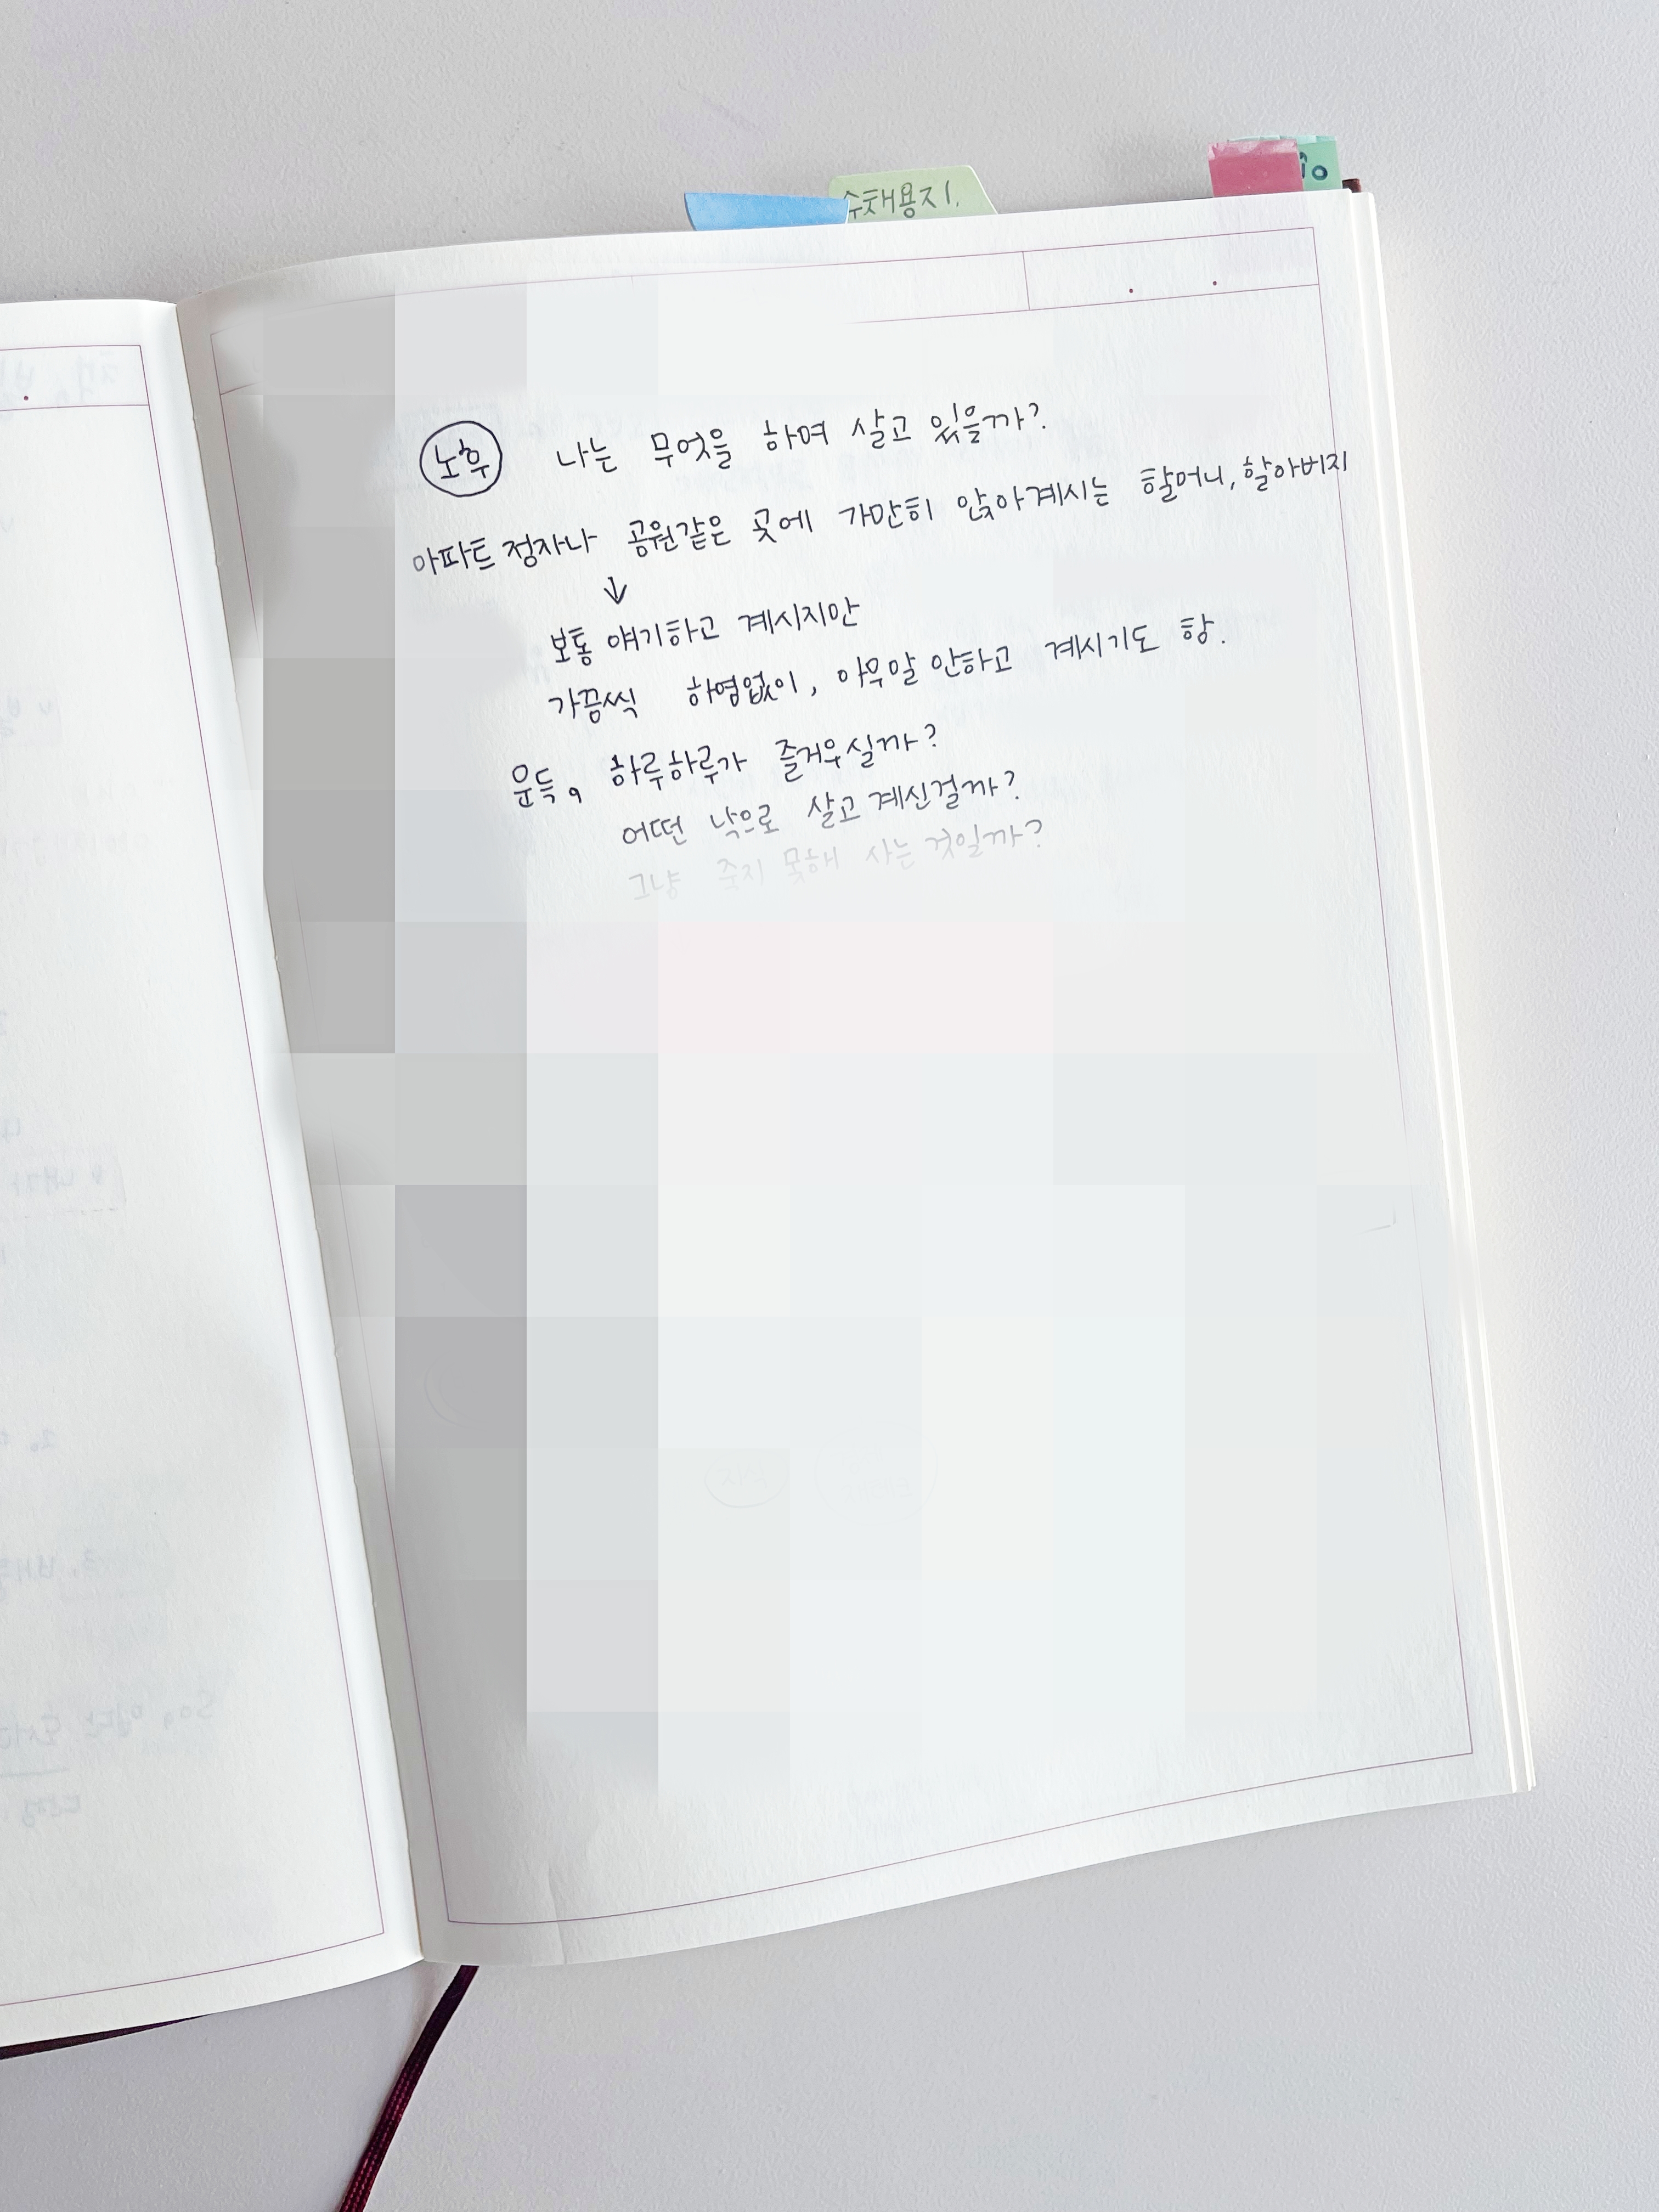 수채용지1.
노후 나는 무엇을 하며 살고 있을까?
아파트 정자나 공원같은 곳에 가만히 앉아계시는 할머니, 할아버지
↓
보통 얘기하고 계시지만
가끔씩 하염없이, 아무말 안하고 계시기도 함.
문득, 하루하루가 즐거우실까?
어떤 낙으로 살고 계신걸까?
그냥 죽지 못해 사는 것일까?